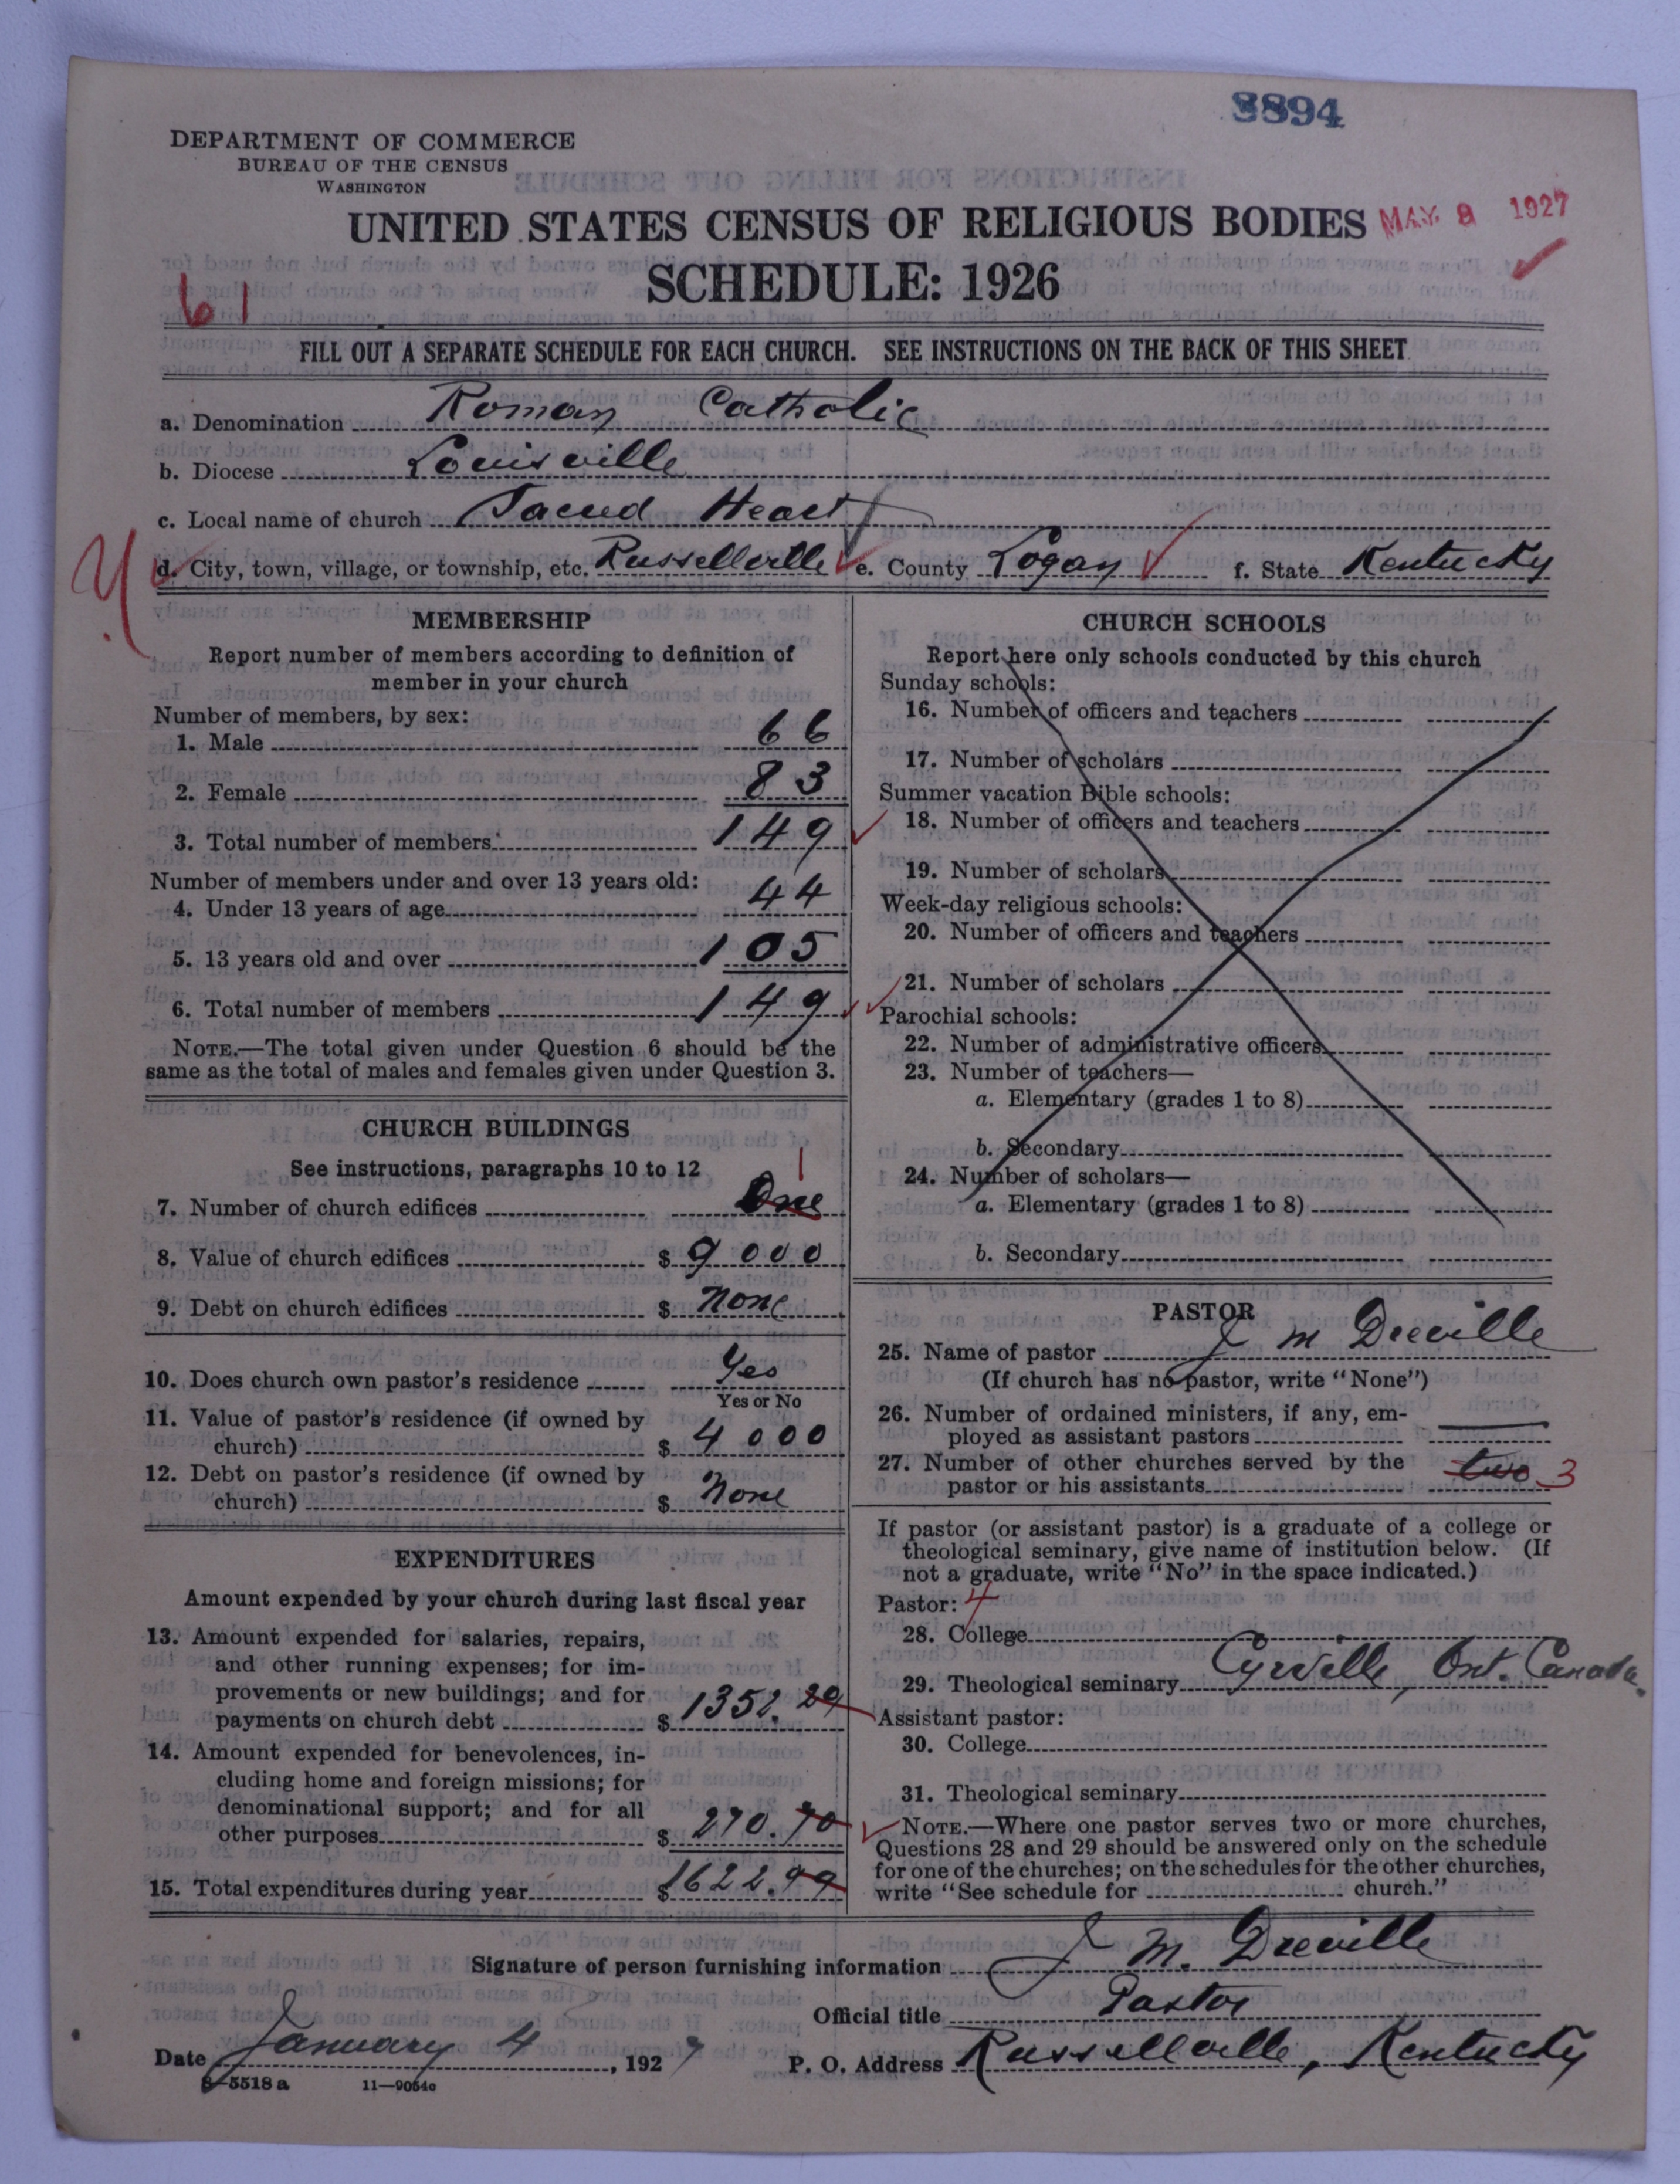 8894
DEPARTMENT OF COMMERCE
BUREAU OF THE CENSUS
WASHINGTON
UNITED STATES CENSUS OF RELIGIOUS BODIES
MAY 9 1927
SCHEDULE: 1926
61
FILL OUT A SEPARATE SCHEDULE FOR EACH CHURCH. SEE INSTRUCTIONS ON THE BACK OF THIS SHEET
a. Denomination Roman Catholic
b. Diocese Louisville
c. Local name of church Sacred Heart
d. City, town, village, or township, etc. Russellville e. County Logan f. State Kentucky
MEMBERSHIP
Report number of members according to definition of
member in your church
Number of members, by sex:
1. Male 66
2. Female 83
3. Total number of members 149
Number of members under and over 13 years old:
4. Under 13 years of age 44
5. 13 years old and over 105
6. Total number of members 149
NOTE.—The total given under Question 6 should be the
same as the total of males and females given under Question 3.
CHURCH BUILDINGS
See instructions, paragraphs 10 to 12
1
7. Number of church edifices One
8. Value of church edifices $ 9000
9. Debt on church edifices $ None
10. Does church own pastor's residence Yes
Yes or No
11. Value of pastor's residence (if owned by
church) $ 4000
12. Debt on pastor's residence (if owned by
church) $ None
EXPENDITURES
Amount expended by your church during last fiscal year
13. Amount expended for salaries, repairs,
and other running expenses; for im-
provements or new buildings; and for
payments on church debt $ 1352.29
14. Amount expended for benevolences, in-
cluding home and foreign missions; for
denominational support; and for all
other purposes $ 270.70
15. Total expenditures during year $ 1622.99
CHURCH SCHOOLS
Report here only schools conducted by this church
Sunday schools:
16. Number of officers and teachers
17. Number of scholars
Summer vacation Bible schools:
18. Number of officers and teachers
19. Number of scholars
Week-day religious schools:
20. Number of officers and teachers
21. Number of scholars
Parochial schools:
22. Number of administrative officers
23. Number of teachers—
a. Elementary (grades 1 to 8)
b. Secondary
24. Number of scholars—
a. Elementary (grades 1 to 8)
b. Secondary
PASTOR
25. Name of pastor J M Dreville
(If church has no pastor, write "None")
26. Number of ordained ministers, if any, em-
ployed as assistant pastors
27. Number of other churches served by the
pastor or his assistants two 3
If pastor (or assistant pastor) is a graduate of a college or
theological seminary, give name of institution below. (If
not a graduate, write "No" in the space indicated.)
Pastor: 4
28. College
29. Theological seminary Cyrville, Ont. Canada.
Assistant pastor:
30. College
31. Theological seminary
NOTE.—Where one pastor serves two or more churches,
Questions 28 and 29 should be answered only on the schedule
for one of the churches; on the schedules for the other churches,
write "See schedule for church."
Signature of person furnishing information J M. Dreville
Official title Pastor
Date January 4, 1927 P. O. Address Russellville, Kentucky
8—5518 a 11—9054c